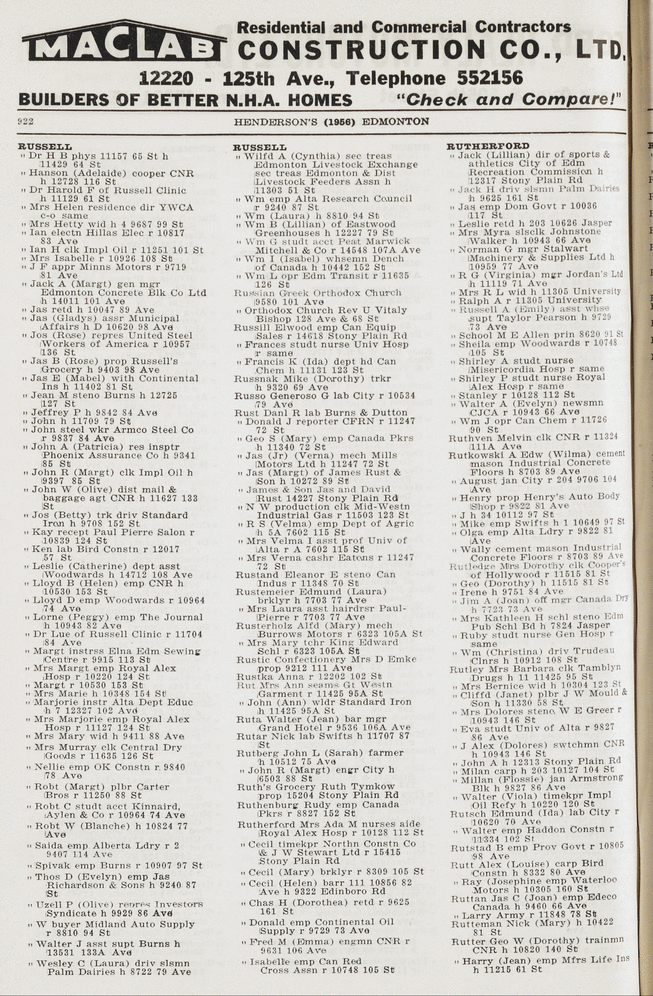 MACLAB
Residential and Commercial Contractors
CONSTRUCTION CO., LTD.
12220 - 125th Ave., Telephone 552156
BUILDERS OF BETTER N.H.A. HOMES "Check and Compare!"
922 HENDERSON'S (1956) EDMONTON
RUSSELL
" Dr H B phys 11157 65 St h
11429 64 St
" Hanson (Adelaide) cooper CNR
h 12728 116 St
" Dr Harold F of Russell Clinic
h 11129 61 St
" Mrs Helen residence dir YWCA
c-o same
" Mrs Hetty wid h 4 9687 99 St
" Ian electn Hillas Elec r 10817
83 Ave
" Ian H clk Impl Oil r 11251 101 St
" Mrs Isabelle r 10926 108 St
" J F appr Minns Motors r 9719
81 Ave
" Jack A (Margt) gen mgr
Edmonton Concrete Blk Co Ltd
h 14011 101 Ave
" Jas retd h 10047 89 Ave
" Jas (Gladys) assr Municipal
Affairs h D 10620 98 Ave
" Jos (Rose) repres United Steel
Workers of America r 10957
136 St
" Jas B (Rose) prop Russell's
Grocery h 9403 98 Ave
" Jas E (Mabel) with Continental
Ins h 11402 81 St
" Jean M steno Burns h 12725
127 St
" Jeffrey P h 9842 84 Ave
" John h 11709 79 St
" John steel wkr Armco Steel Co
r 9837 84 Ave
" John A (Patricia) res insptr
Phoenix Assurance Co h 9341
85 St
" John R (Margt) clk Impl Oil h
9397 85 St
" John W (Olive) dist mail &
baggage agt CNR h 11627 133
St
" Jos (Betty) trk driv Standard
Iron h 9708 152 St
" Kay recept Paul Pierre Salon r
10839 124 St
" Ken lab Bird Constn r 12017
57 St
" Leslie (Catherine) dept asst
Woodwards h 14712 108 Ave
" Lloyd B (Helen) emp CNR h
10530 153 St
" Lloyd D emp Woodwards r 10964
74 Ave
" Lorne (Peggy) emp The Journal
h 10943 82 Ave
" Dr Lue of Russell Clinic r 11704
84 Ave
" Margt instrss Elna Edm Sewing
Centre r 9915 113 St
" Mrs Margt emp Royal Alex
Hosp r 10220 124 St
" Margt r 10530 153 St
" Mrs Marie h 10348 154 St
" Marjorie instr Alta Dept Educ
h 7 12327 102 Ave
" Mrs Marjorie emp Royal Alex
Hosp r 11127 124 St
" Mrs Mary wid h 9411 88 Ave
" Mrs Murray clk Central Dry
Goods r 11635 126 St
" Nellie emp OK Constn r 9840
78 Ave
" Robt (Margt) plbr Carter
Bros r 11250 88 St
" Robt C studt acct Kinnaird,
Aylen & Co r 10964 74 Ave
" Robt W (Blanche) h 10824 77
Ave
" Saida emp Alberta Ldry r 2
9407 114 Ave
" Spivak emp Burns r 10907 97 St
" Thos D (Evelyn) emp Jas
Richardson & Sons h 9240 87
St
" Uzell P (Olive) repres Investors
Syndicate h 9929 86 Ave
" W buyer Midland Auto Supply
r 8810 94 St
" Walter J asst supt Burns h
13531 133A Ave
" Wesley C (Laura) driv slsmn
Palm Dairies h 8722 79 Ave
RUSSELL
" Wilfd A (Cynthia) sec treas
Edmonton Livestock Exchange
sec treas Edmonton & Dist
Livestock Feeders Assn h
11303 51 St
" Wm emp Alta Research Council
r 9240 87 St
" Wm (Laura) h 8810 94 St
" Wm B (Lillian) of Eastwood
Greenhouses h 12227 79 St
" Wm G studt acct Peat Marwick
Mitchell & Co r 14548 107A Ave
" Wm I (Isabel) whsemn Dench
of Canada h 10442 152 St
" Wm L opr Edm Transit r 11635
126 St
Russian Greek Orthodox Church
9580 101 Ave
" Orthodox Church Rev U Vitaly
Bishop 128 Ave & 68 St
Russill Elwood emp Can Equip
Sales r 14618 Stony Plain Rd
" Frances studt nurse Univ Hosp
r same
" Francis K (Ida) dept hd Can
Chem h 11131 123 St
Russnak Mike (Dorothy) trkr
h 9320 69 Ave
Russo Generoso G lab City r 10534
79 Ave
Rust Danl R lab Burns & Dutton
" Donald J reporter CFRN r 11247
72 St
" Geo S (Mary) emp Canada Pkrs
h 11340 72 St
" Jas (Jr) (Verna) mech Mills
Motors Ltd h 11247 72 St
" Jas (Margt) of James Rust &
Son h 10272 89 St
" James & Son Jas and David
Rust 14227 Stony Plain Rd
" N W production clk Mid-Westn
Industrial Gas r 11503 123 St
" R S (Velma) emp Dept of Agric
h 5A 7602 115 St
" Mrs Velma I asst prof Univ of
Alta r A 7602 115 St
" Mrs Verna cashr Eatons r 11247
72 St
Rustand Eleanor E steno Can
Indus r 11348 70 St
Rustemeier Edmund (Laura)
brklyr h 7703 77 Ave
" Mrs Laura asst hairdrsr Paul-
Pierre r 7703 77 Ave
Rusterholz Alfd (Mary) mech
Burrows Motors r 6323 105A St
" Mrs Mary tchr King Edward
Schl r 6323 105A St
Rustic Confectionery Mrs D Emke
prop 9212 111 Ave
Rustka Anna r 12202 102 St
Rut Mrs Ann seams Gt Westn
Garment r 11425 95A St
" John (Ann) wldr Standard Iron
h 11425 95A St
Ruta Walter (Jean) bar mgr
Grand Hotel r 9536 106A Ave
Rutar Nick lab Swifts h 11707 87
St
Rutberg John L (Sarah) farmer
h 10512 75 Ave
" John R (Margt) engr City h
6503 88 St
Ruth's Grocery Ruth Tymkow
prop 15204 Stony Plain Rd
Ruthenburg Rudy emp Canada
Pkrs r 8827 152 St
Rutherford Mrs Ada M nurses aide
Royal Alex Hosp r 10128 112 St
" Cecil timekpr Northn Constn Co
& J W Stewart Ltd r 15415
Stony Plain Rd
" Cecil (Mary) brklyr r 8309 105 St
" Cecil (Helen) barr 111 10856 82
Ave h 9322 Edinboro Rd
" Chas H (Dorothea) retd r 9625
161 St
" Donald emp Continental Oil
Supply r 9729 73 Ave
" Fred M (Emma) engmn CNR r
9631 106 Ave
" Isabelle emp Can Red
Cross Assn r 10748 105 St
RUTHERFORD
" Jack (Lillian) dir of sports &
athletics City of Edm
Recreation Commission h
12317 Stony Plain Rd
" Jack H driv slsmn Palm Dairies
h 9625 161 St
" Jas emp Dom Govt r 10036
117 St
" Leslie retd h 203 10626 Jasper
" Mrs Myra slsclk Johnstone
Walker h 10943 66 Ave
" Norman G mgr Stalwart
Machinery & Supplies Ltd h
10959 77 Ave
" R G (Virginia) mgr Jordan's Ltd
h 11119 71 Ave
" Mrs R L wid h 11305 University
" Ralph A r 11305 University
" Russell A (Emily) asst whse
supt Taylor Pearson h 9729
73 Ave
" School M E Allen prin 8620 91 St
" Sheila emp Woodwards r 10748
105 St
" Shirley A studt nurse
Misericordia Hosp r same
" Shirley P studt nurse Royal
Alex Hosp r same
" Stanley r 10128 112 St
" Walter A (Evelyn) newsmn
CJCA r 10943 66 Ave
" Wm J opr Can Chem r 11726
90 St
Ruthven Melvin clk CNR r 11324
111A Ave
Rutkowski A Edw (Wilma) cement
mason Industrial Concrete
Floors h 8703 89 Ave
" August jan City r 204 9706 104
Ave
" Henry prop Henry's Auto Body
Shop r 9822 81 Ave
" J h 34 10112 97 St
" Mike emp Swifts h 1 10649 97 St
" Olga emp Alta Ldry r 9822 81
Ave
" Wally cement mason Industrial
Concrete Floors r 8703 89 Ave
Rutledge Mrs Dorothy clk Cooper's
of Hollywood r 11515 81 St
" Geo (Dorothy) h 11515 81 St
" Irene h 9751 84 Ave
" Jim A (Joan) off mgr Canada Dry
h 7723 73 Ave
" Mrs Kathleen H schl steno Edm
Pub Schl Bd h 7824 Jasper
" Ruby studt nurse Gen Hosp r
same
" Wm (Christina) driv Trudeau
Clnrs h 10912 108 St
Rutley Mrs Barbara clk Tamblyn
Drugs h 11 11425 95 St
" Mrs Bernice wid h 10304 123 St
" Cliffd (Janet) plbr J W Mould &
Son h 11330 58 St
" Mrs Dolores steno W E Greer r
10943 146 St
" Eva studt Univ of Alta r 9827
86 Ave
" J Alex (Dolores) swtchmn CNR
h 10943 146 St
" John A h 12313 Stony Plain Rd
" Milan carp h 203 10127 104 St
" Millan (Flossie) jan Armstrong
Blk h 9827 86 Ave
" Walter (Viola) timekpr Impl
Oil Refy h 10220 120 St
Rutsch Edmund (Ida) lab City r
10620 70 Ave
" Walter emp Haddon Constn r
11334 102 St
Rutstad B emp Prov Govt r 10805
98 Ave
Rutt Alex (Louise) carp Bird
Constn h 8332 80 Ave
" Ray (Josephine emp Waterloo
Motors h 10305 160 St
Ruttan Jas C (Joan) emp Edeco
Canada h 9460 66 Ave
" Larry Army r 11848 78 St
Rutteman Nick (Mary) h 10422
81 St
Rutter Geo W (Dorothy) trainmn
CNR h 10820 140 St
" Harry (Jean) emp Mfrs Life Ins
h 11215 61 St